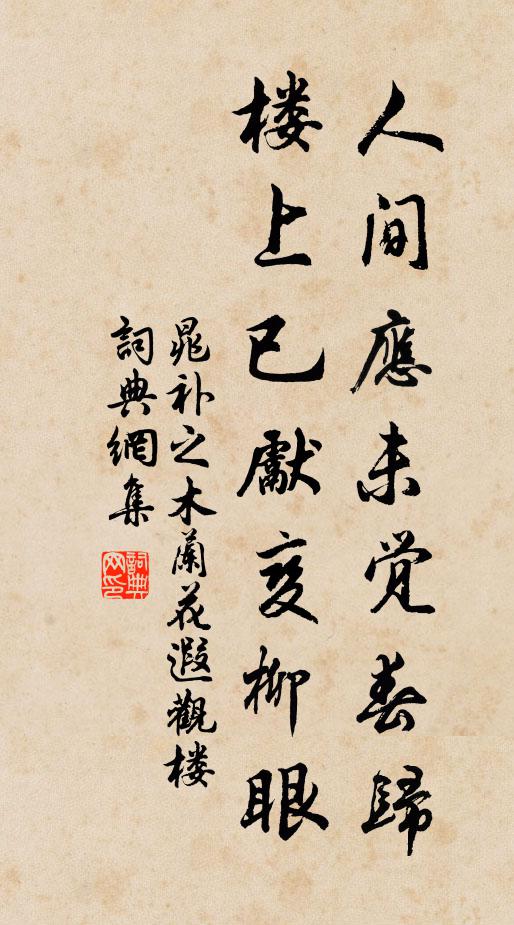 人間應未觉春歸
楼上已獻变柳眼
晁补之木蘭花遐觀楼
詞典網集
詞典网印